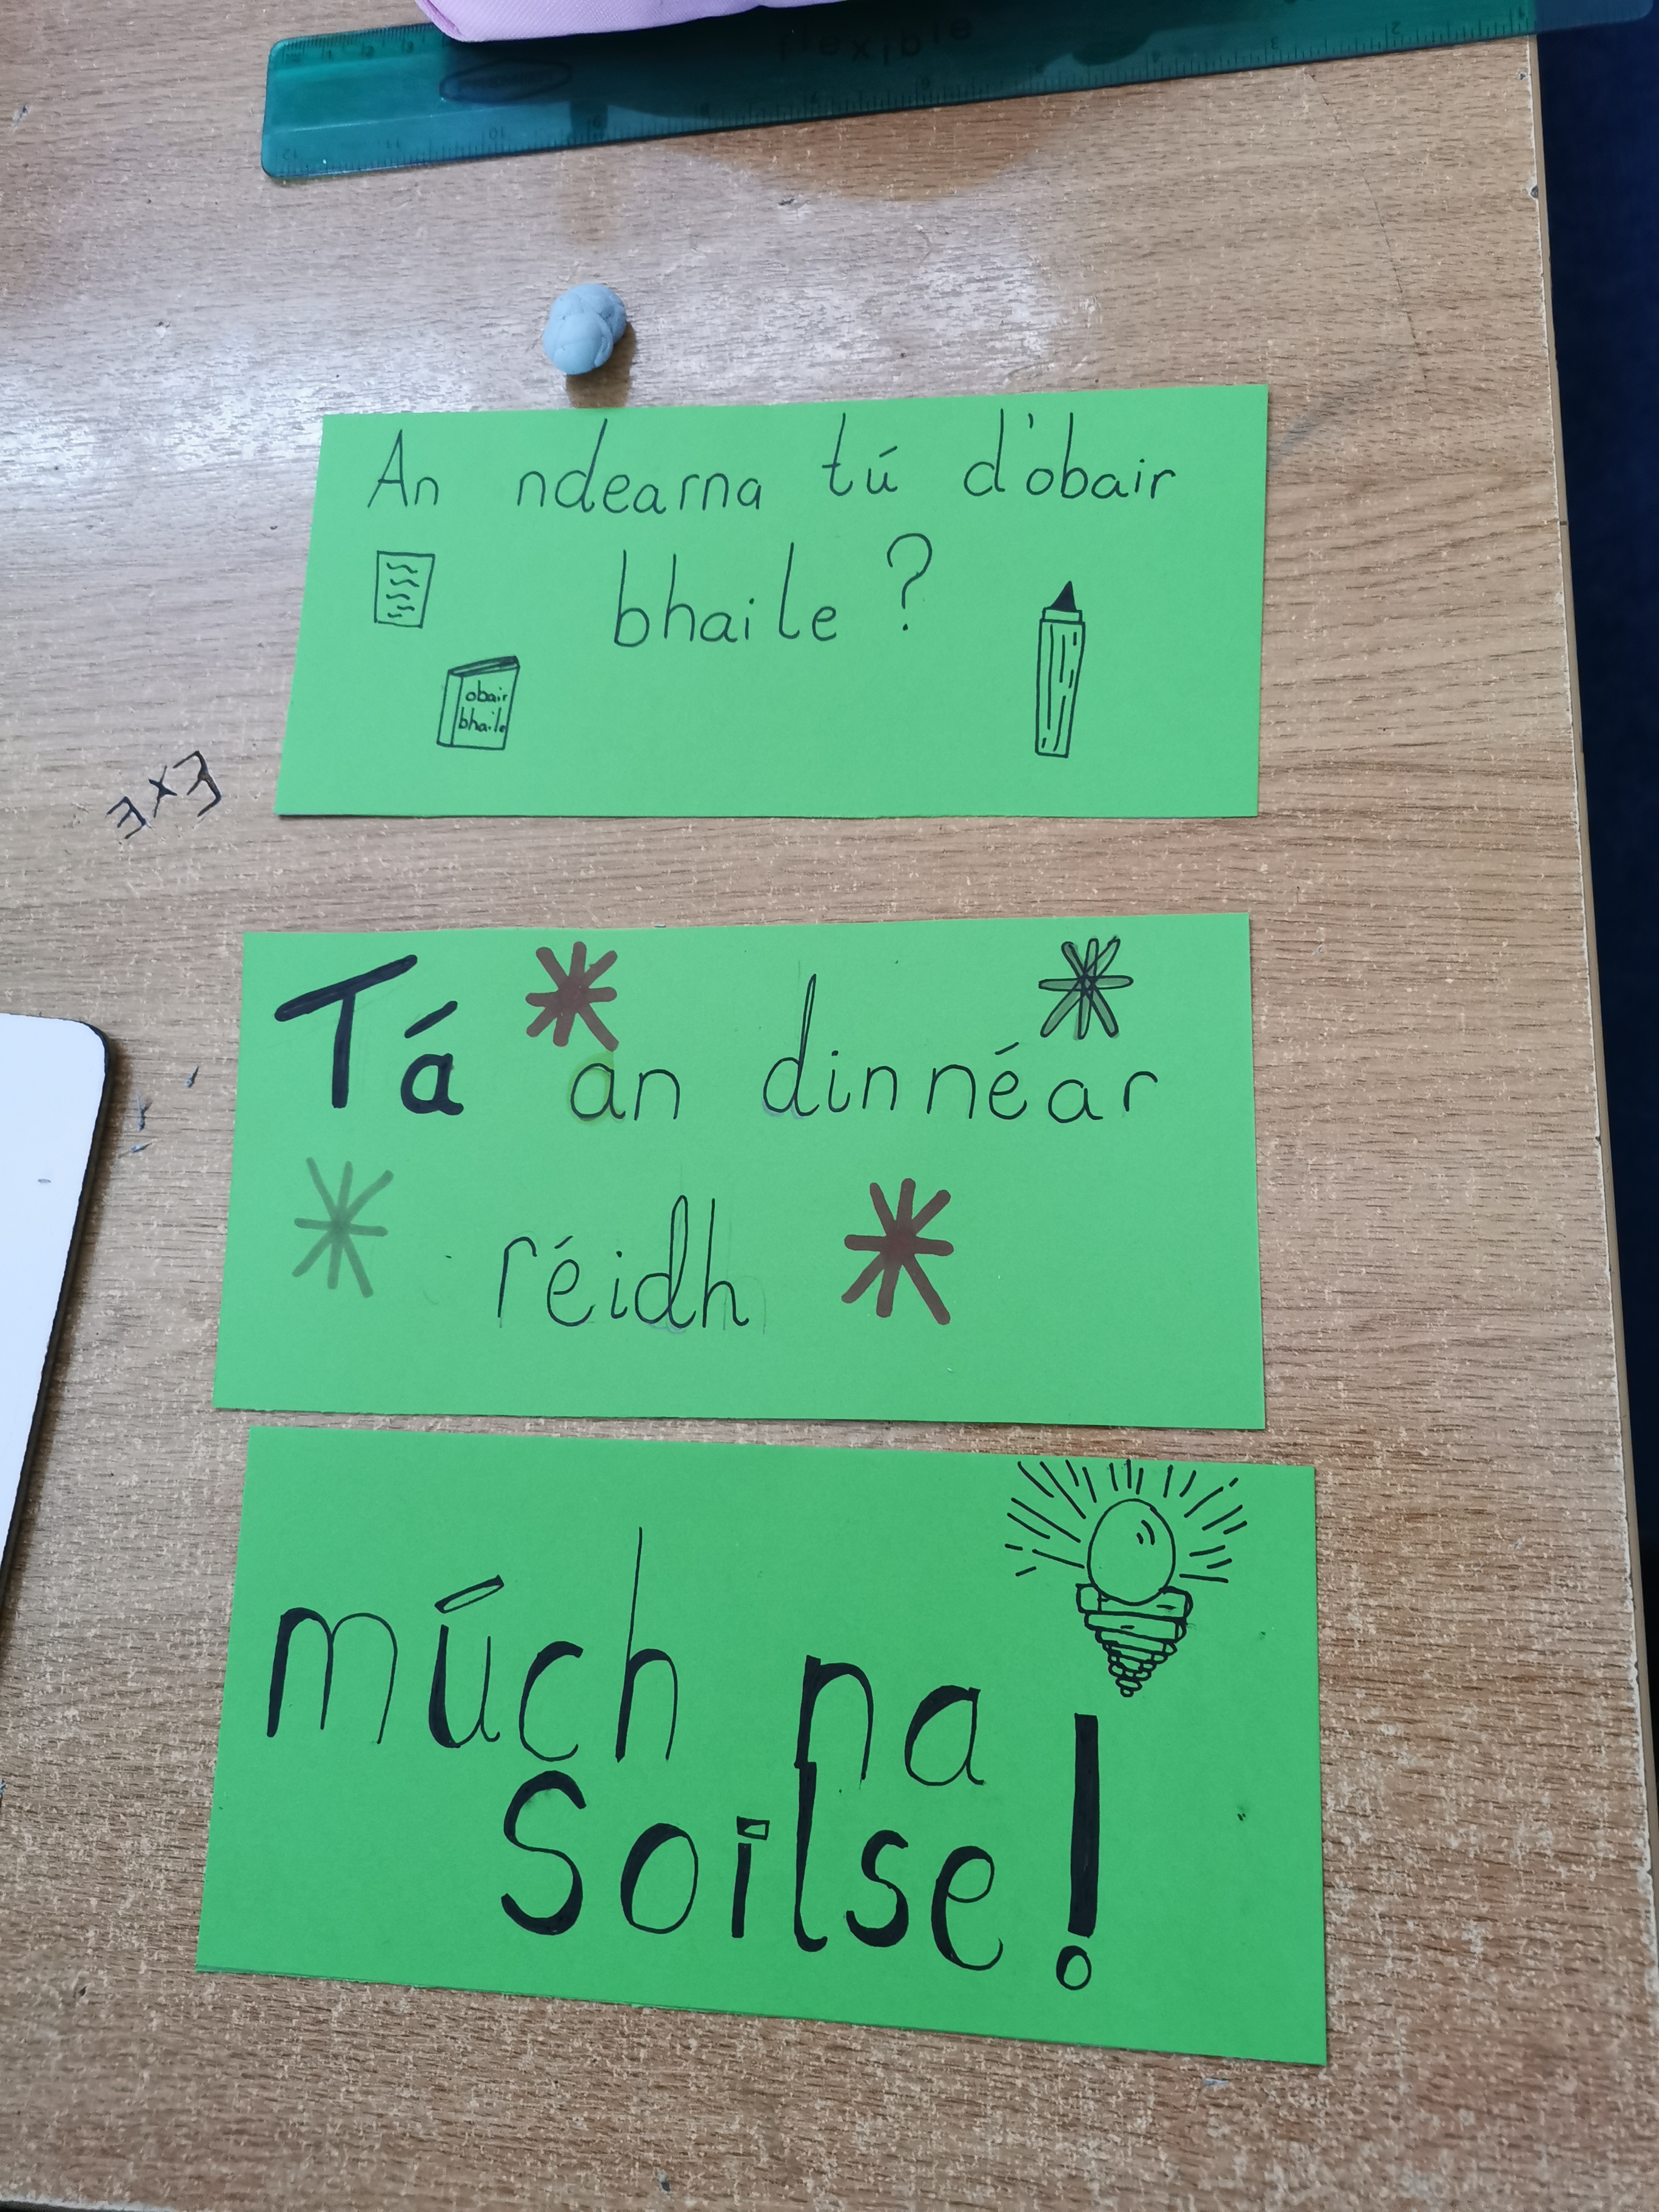 flexible
An ndearna tú d'obair
bhaile?
obair
bhaile
3x3
Tá an dinnéar
réidh
múch na
Soilse!